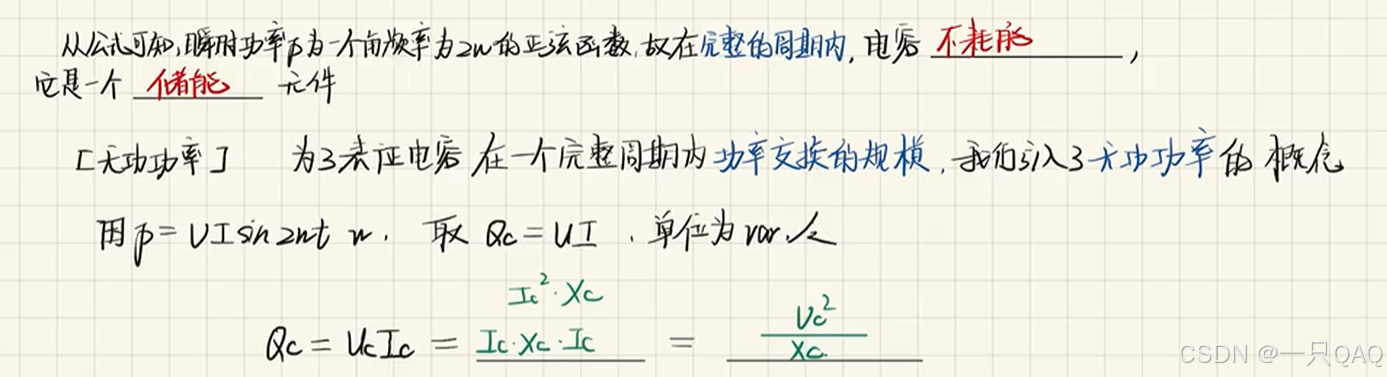 从公式可知,瞬时功率p为一个角频率为2w的正弦函数,故在完整的周期内,电容 不耗能,
它是一个 储能 元件
[无功功率] 为了表征电容在一个完整周期内功率交换的规模,我们引入了无功功率的概念
因p=UIsin2wt w. 取 Qc=UI ,单位为var.
Ic²·Xc
Qc=UcIc= Ic·Xc·Ic = Uc²/Xc
CSDN @一只QAQ